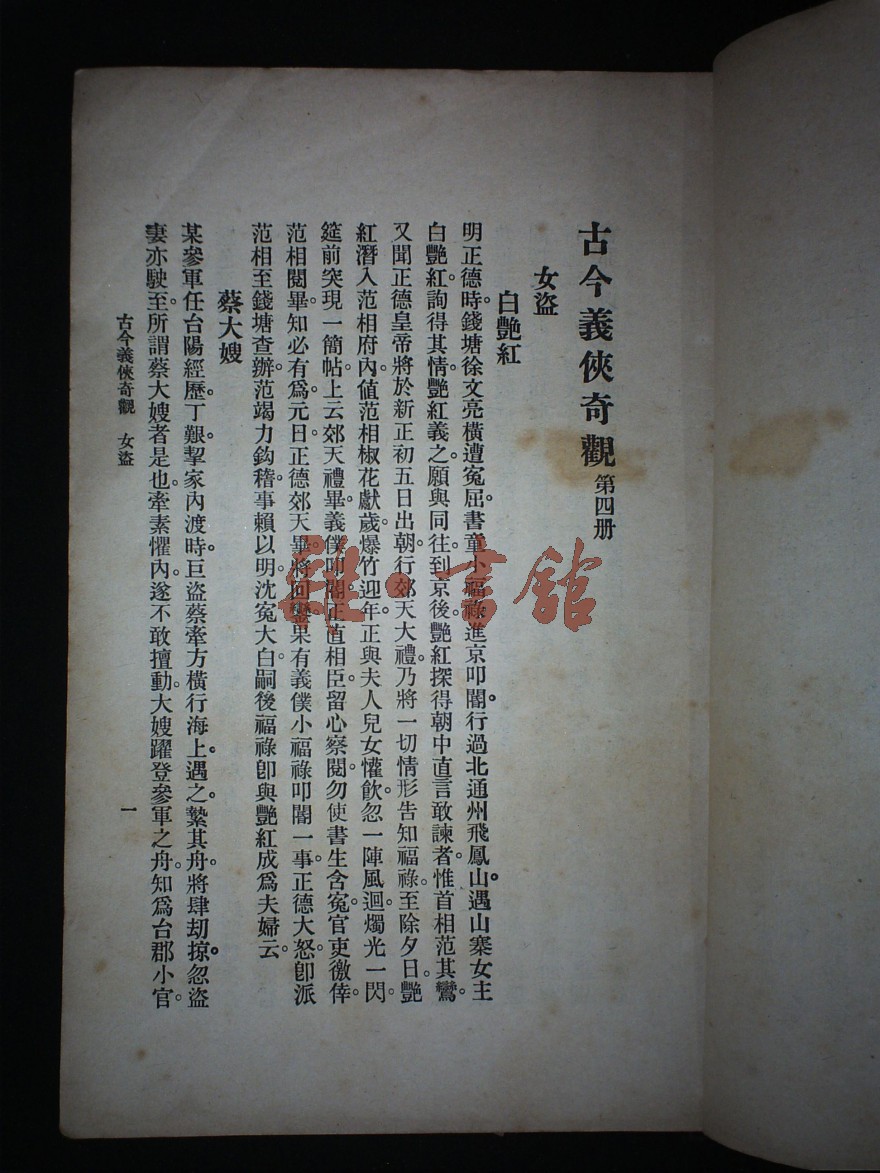 古今義俠奇觀 第四册
女盜
白艷紅
明正德時。錢塘徐文亮橫遭寃屈。書童小福祿進京叩閽。行過北通州飛鳳山。遇山寨女主
白艷紅。詢得其情。艷紅義之。願與同往。到京後。艷紅探得朝中直言敢諫者。惟首相范其鸞。
又聞正德皇帝將於新正初五日出朝。行郊天大禮。乃將一切情形告知福祿。至除夕日。艷
紅潛入范相府內。値范相椒花獻歲。爆竹迎年。正與夫人兒女懽飮。忽一陣風迴。燭光一閃。
筵前突現一簡帖。上云郊天禮畢。義僕叩閽。正直相臣。留心察閱。勿使書生含寃。官吏徼倖。
范相閱畢。知必有爲。元日。正德郊天畢。將回鑾。果有義僕小福祿叩閽一事。正德大怒。卽派
范相至錢塘查辦。范竭力鈎稽。事賴以明。沈寃大白。嗣後福祿卽與艷紅成爲夫婦云。
蔡大嫂
某參軍任台陽經歷。丁艱。挈家內渡。時巨盜蔡牽方橫行海上。遇之。縶其舟。將肆刧掠。忽盜
妻亦駛至。所謂蔡大嫂者是也。牽素懼內。遂不敢擅動。大嫂躍登參軍之舟。知爲台郡小官。
古今義俠奇觀 女盜
一
雜·書館